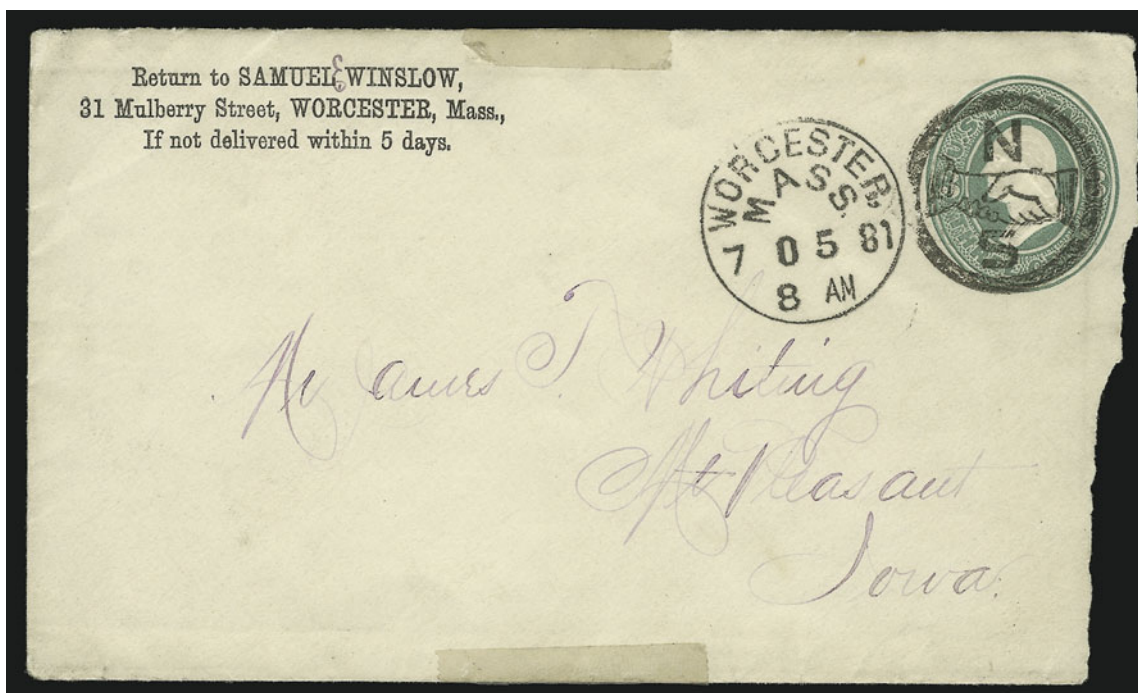 Return to SAMUEL E WINSLOW,
31 Mulberry Street, WORCESTER, Mass.,
If not delivered within 5 days.
WORCESTER
MASS.
7 0 5 81
8 AM
N
S
Mr James T. Whiting
Mt Pleasant
Iowa.